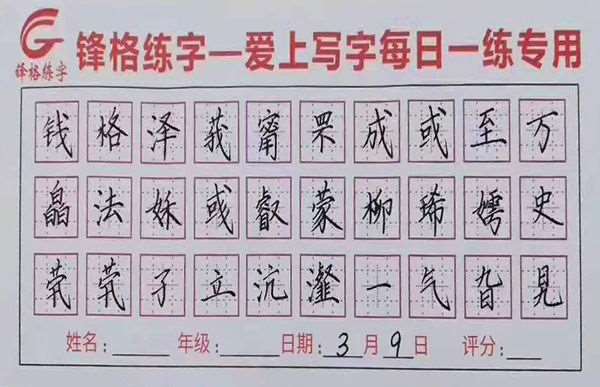 锋格练字
锋格练字—爱上写字每日一练专用
钱格泽莪甯罘成或至万
晶法姝彧叡蒙柳琋嫮史
茕茕孑立沆瀣一气旮旯
姓名: 年级: 日期:3月9日 评分: